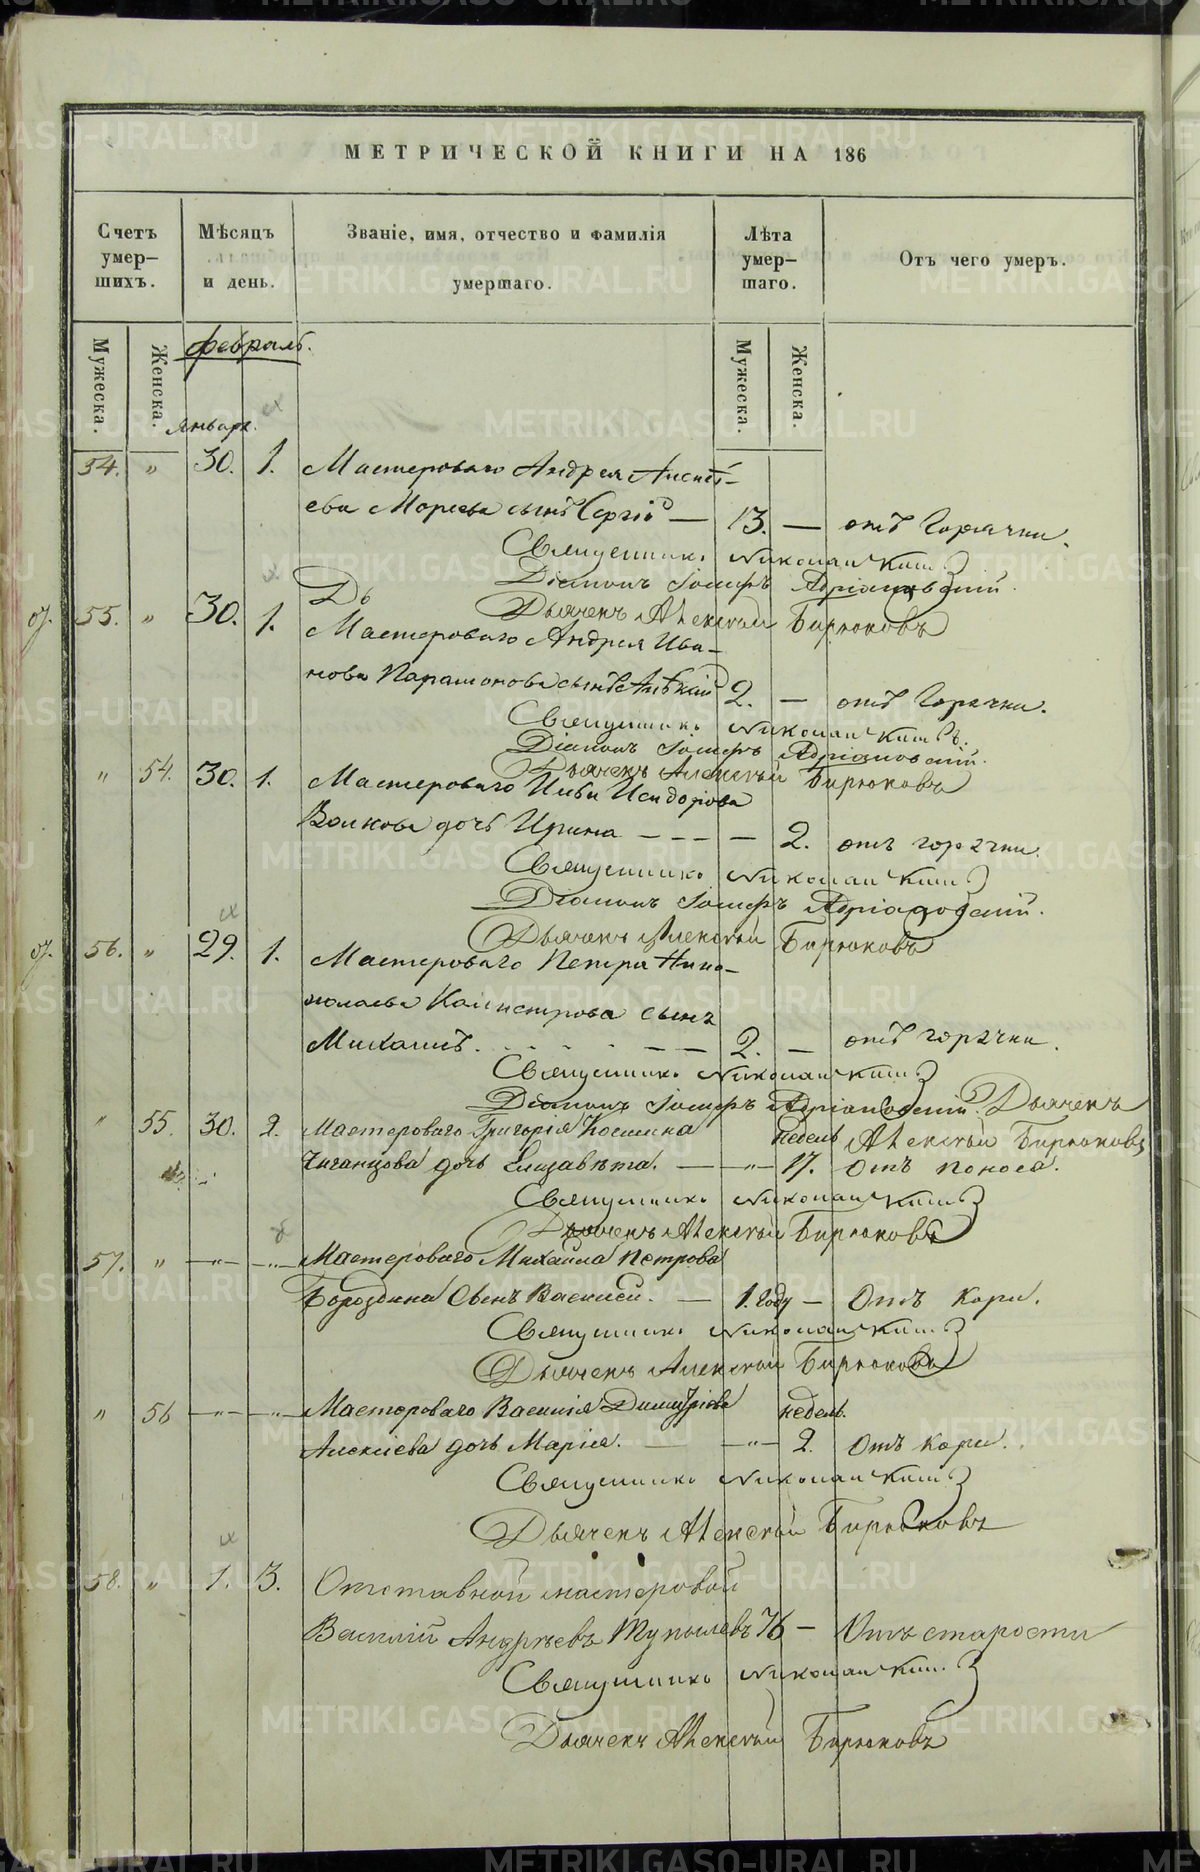 МЕТРИЧЕСКОЙ КНИГИ НА 186
Счетъ умершихъ.
Мѣсяцъ и день.
Званіе, имя, отчество и фамилія умершаго.
Лѣта умершаго.
Отъ чего умеръ.
Мужеска. Женска.
Февраль.
Мужеска. Женска.
Январь.
54. " 30. 1. Мастероваго Андрея
ева сынъ Сергій — 13. — отъ Горячки.
Священникъ Николай
Діаконъ Іосифъ Адріановскій.
Дь
Дьячекъ Алексѣй Бирюковъ
55. " 30. 1. Мастероваго Андрея Ива-
нова Парамонова сынъ 2. — отъ Горячки.
Священникъ Николай
Діаконъ Іосифъ Адріановскій.
Дьячекъ Алексѣй Бирюковъ
" 54. 30. 1. Мастероваго Ильи Исидорова
Волкова дочь Ирина — — — — 2. отъ горячки.
Священникъ Николай
Діаконъ Іосифъ Адріановскій.
Дьячекъ Алексѣй Бирюковъ
56. " 29. 1. Мастероваго Петра Нико-
колаева Калистрова сынъ
Михаилъ. — — 2. — отъ горячки.
Священникъ Николай
Діаконъ Іосифъ Адріановскій. Дьячекъ
" 55. 30. 2. Мастероваго Григорія Космина недель Алексѣй Бирюковъ
Чиганцова дочь Елизавѣта. — — " — 17. Отъ поноса.
Священникъ Николай
Дьячекъ Алексѣй Бирюковъ
57. " — " — — " — Мастероваго Михаила Петрова
Бороздина сынъ Василій. — 1. году — Отъ кори.
Священникъ Николай
Дьячекъ Алексѣй Бирюковъ
" 56 — " — — " — Мастероваго Василія Димитріева недель.
Алексіева дочь Марія. — — " — 2. Отъ кори.
Священникъ Николай
Дьячекъ Алексѣй Бирюковъ
58. " 1. 3. Отставной мастеровой
Василій Андреевъ 76 — Отъ старости
Священникъ Николай
Дьячекъ Алексѣй Бирюковъ
METRIKI.GASO-URAL.RU